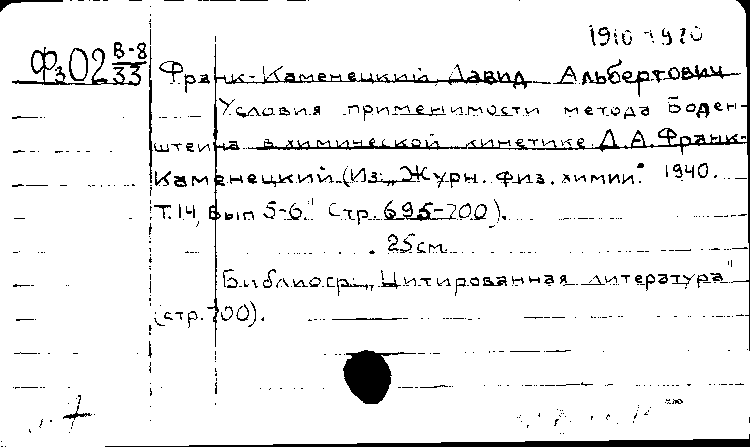 1910-1970
Фз02 В-8/33 Франк-Каменецкий, Давид Альбертович
Условия применимости метода Боден-
штейна в химической кинетике. Д.А. Франк-
Каменецкий. (Из: „Журн. физ. химии." 1940.
Т.14, Вып 5-6." Стр. 695-700).
25см
Библиогр: „Цитированная литература"
(стр. 700).